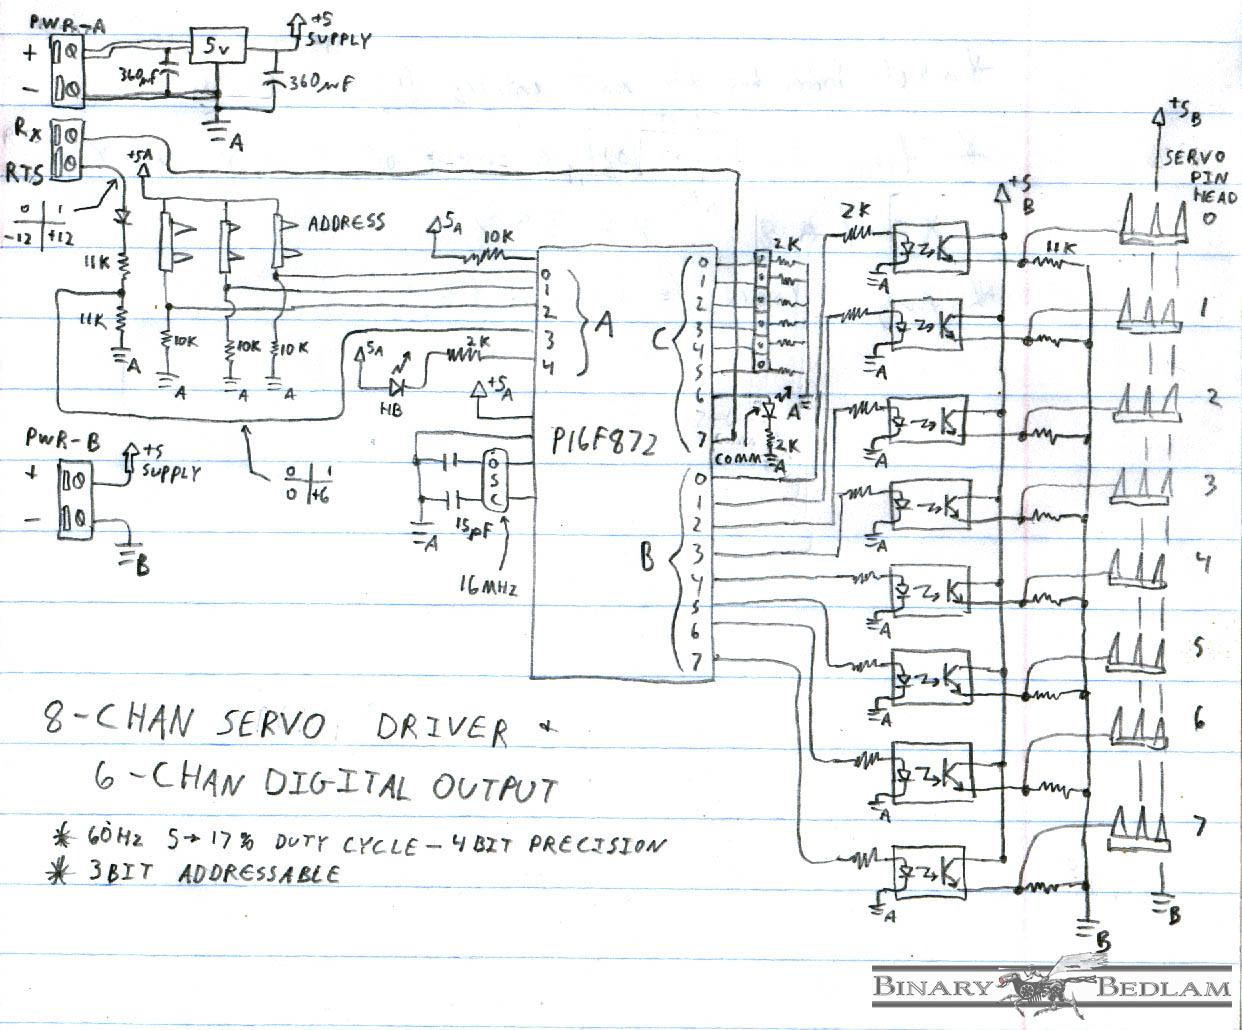 PWR-A
+
-
5v
360µF
360µF
+5
SUPPLY
A
Rx
RTS
+5A
0 | 1
-12 | +12
11K
11K
A
ADDRESS
10K
10K
10K
A
A
A
5A
10K
0
1
2
3
4
A
5A
HB
2K
+5A
OSC
15pF
A
16MHz
0 | 1
0 | +6
PWR-B
+
-
+5
SUPPLY
B
P16F872
C
0
1
2
3
4
5
6
7
2K
A
COMM
2K
A
B
0
1
2
3
4
5
6
7
2K
A
A
A
A
A
A
A
A
+5
B
11K
B
+5B
SERVO
PIN
HEAD
0
1
2
3
4
5
6
7
B
8-CHAN SERVO DRIVER &
6-CHAN DIGITAL OUTPUT
* 60Hz 5→17% DUTY CYCLE - 4BIT PRECISION
* 3BIT ADDRESSABLE
BINARY BEDLAM